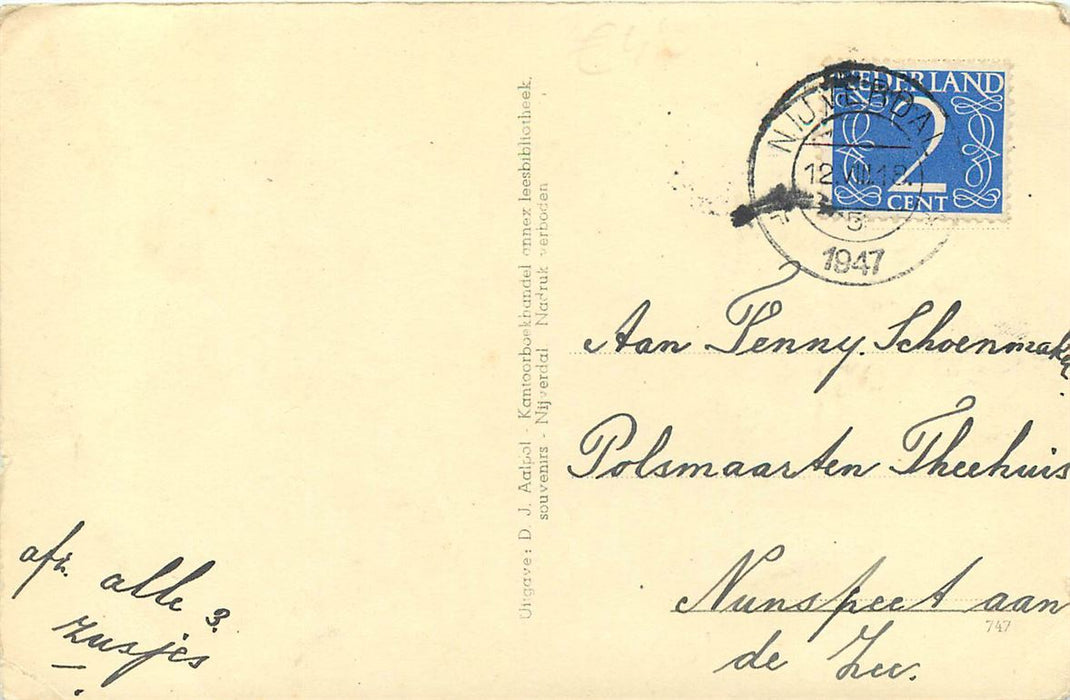 NEDERLAND
2
CENT
NIJVERDAL
12.VIII.18.
5
1947
Aan Fenny. Schoenmaker
Polsmaarten Theehuis
Nunspeet aan
de Zee.
747
Uitgave: D. J. Aalpol - Kantoorboekhandel annex leesbibliotheek,
souvenirs - Nijverdal Nadruk verboden
afz. alle 3.
zusjes